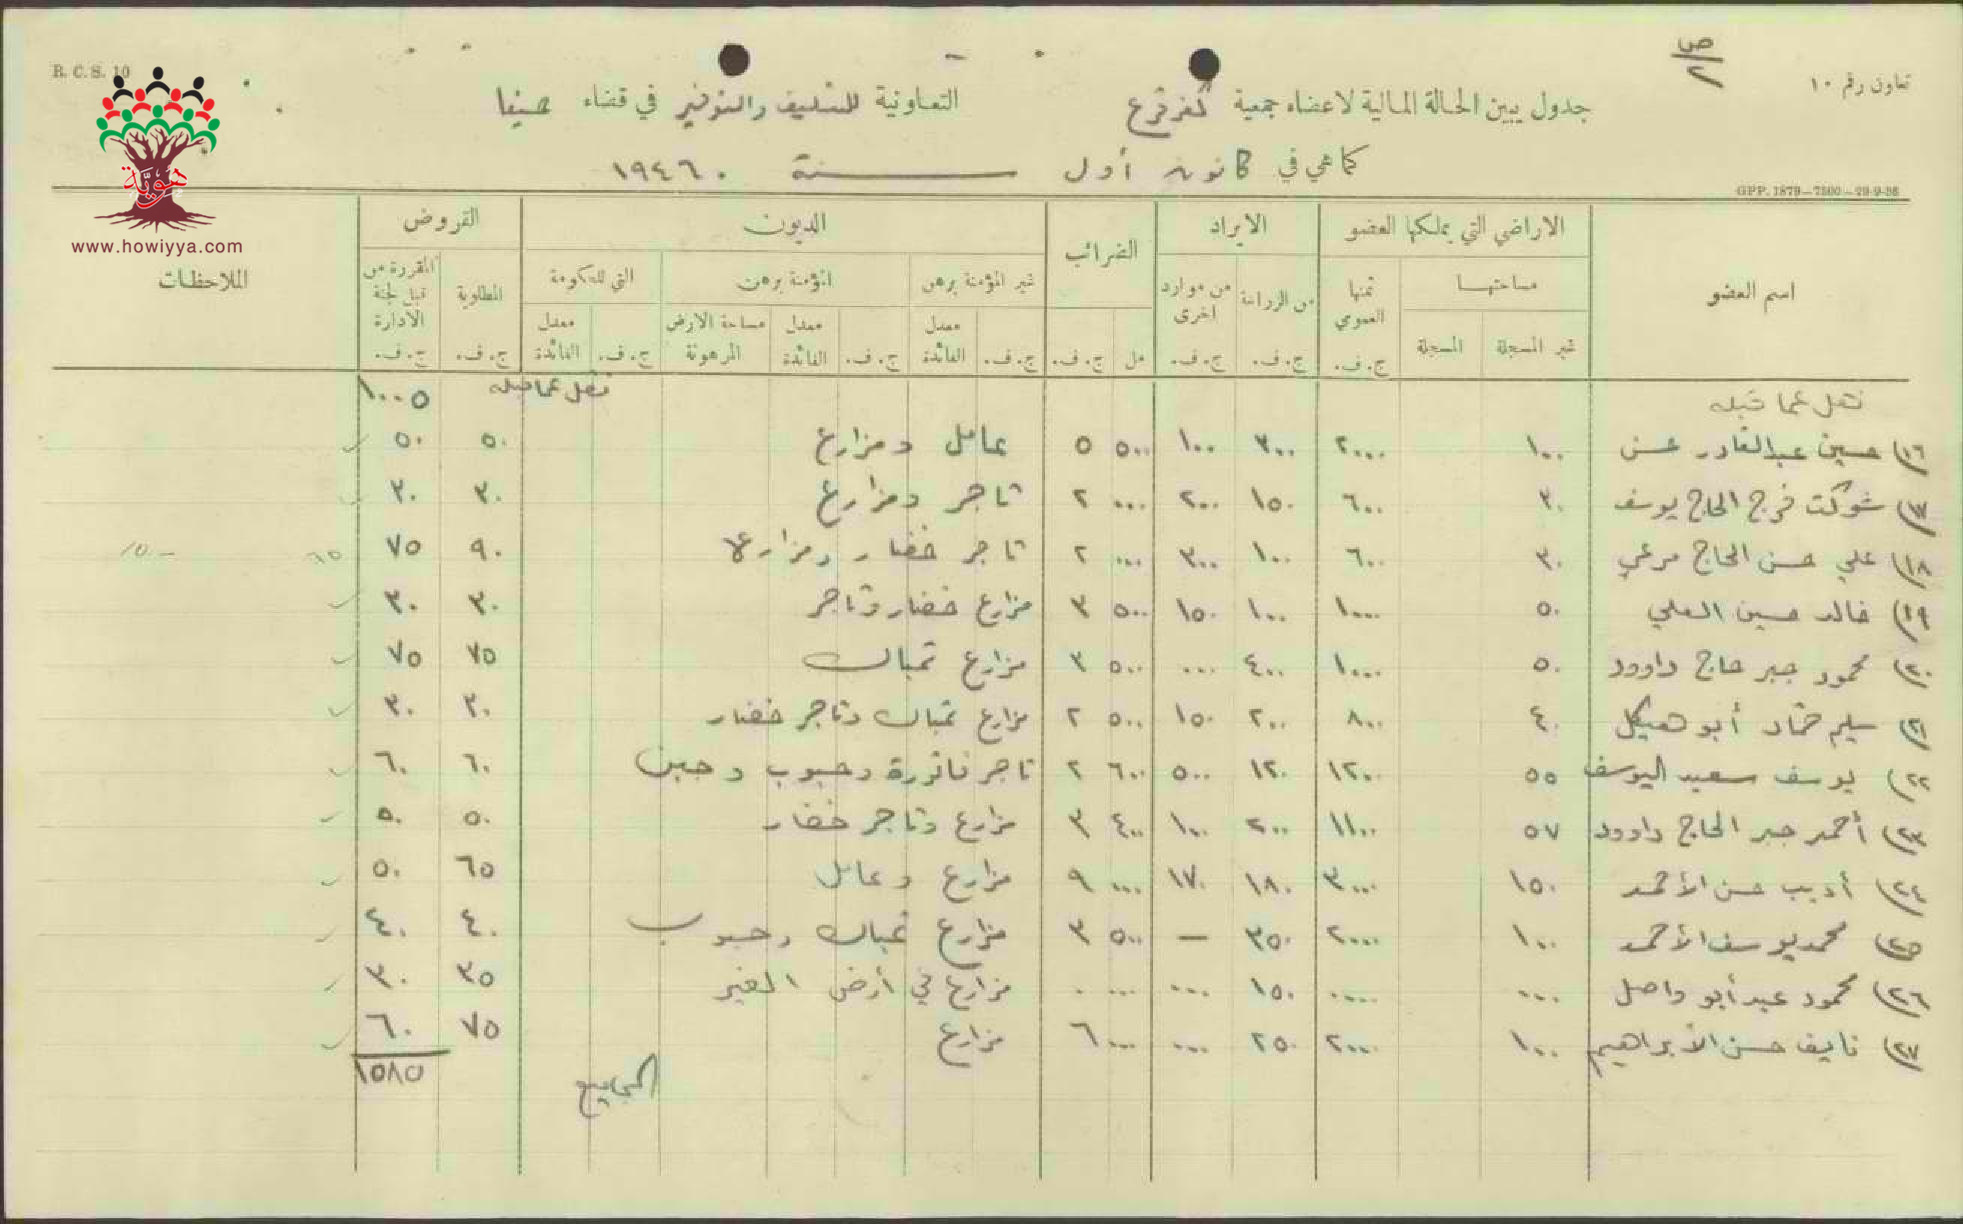 R. C. S. 10
ص/٢
تعاون رقم ١٠
جدول يبين الحالة المالية لاعضاء جمعية كفر قرع التعاونية للتسليف والتوفير في قضاء حيفا
كما هي في كانون أول سنة ١٩٤٦.
GPP. 1879—7500—29-9-36
هويّة
www.howiyya.com
اسم العضو الاراضي التي يملكها العضو الايراد الضرائب الديون القروض الملاحظات
مساحتها ثمنها العمومي من الزراعة من موارد اخرى غير المؤمنة برهن المؤمنة برهن التي للحكومة المطلوبة المقررة من قبل لجنة الادارة
غير المسجلة المسجلة ج.ف. ج.ف. ج.ف. مل ج.ف. ج.ف. معدل الفائدة ج.ف. معدل الفائدة مساحة الارض المرهونة ج.ف. معدل الفائدة ج.ف. ج.ف.
نقل عما قبله نقل عما قبله ١٠٠٥
١٦) حسين عبدالقادر حسن ١٠٠ ٢٠٠٠ ٣٠٠ ١٠٠ ٥٠٠ ٥ عامل ومزارع ٥٠ ٥٠
١٧) شوكت فرج الحاج يوسف ٣٠ ٦٠٠ ١٥٠ ٢٠٠ ٠٠٠ ٢ تاجر ومزارع ٣٠ ٣٠
١٨) علي حسن الحاج مرعي ٣٠ ٦٠٠ ١٠٠ ٣٠٠ ٠٠٠ ٢ تاجر خضار ومزارع ٩٠ ٧٥ ٦٥ ١٥٠-
١٩) خالد حسين العلي ٥٠ ١٠٠٠ ١٠٠ ١٥٠ ٥٠٠ ٣ مزارع خضار وتاجر ٣٠ ٣٠
٢٠) محمود جبر حاج داوود ٥٠ ١٠٠٠ ٤٠٠ ٠٠٠ ٥٠٠ ٣ مزارع تمباك ٧٥ ٧٥
٢١) سليم حمّاد أبو هيكل ٤٠ ٨٠٠ ٢٠٠ ١٥٠ ٥٠٠ ٢ مزارع تمباك وتاجر خضار ٣٠ ٣٠
٢٢) يوسف سعيد اليوسف ٥٥ ١٢٠٠ ١٢٠ ٥٠٠ ٦٠٠ ٢ تاجر فاتورة وحبوب وجبن ٦٠ ٦٠
٢٣) أحمد جبر الحاج داوود ٥٧ ١١٠٠ ٢٠٠ ١٠٠ ٤٠٠ ٣ مزارع وتاجر خضار ٥٠ ٥٠
٢٤) أديب حسن الأحمد ١٥٠ ٣٠٠٠ ١٨٠ ١٧٠ ٠٠٠ ٩ مزارع وعامل ٦٥ ٥٠
٢٥) محمد يوسف الأحمد ١٠٠ ٢٠٠٠ ٣٥٠ — ٥٠٠ ٣ مزارع تمباك وحبوب ٤٠ ٤٠
٢٦) محمود عبد أبو واصل ٠٠٠ ٠٠٠٠ ١٥٠ ٠٠٠ ٠٠٠ ٠ مزارع في أرض الغير ٣٥ ٣٠
٢٧) نايف حسن الأبراهيم ١٠٠ ٢٠٠٠ ٢٥٠ ٠٠٠ ٠٠٠ ٦ مزارع ٧٥ ٦٠
المجاميع ١٥٨٥